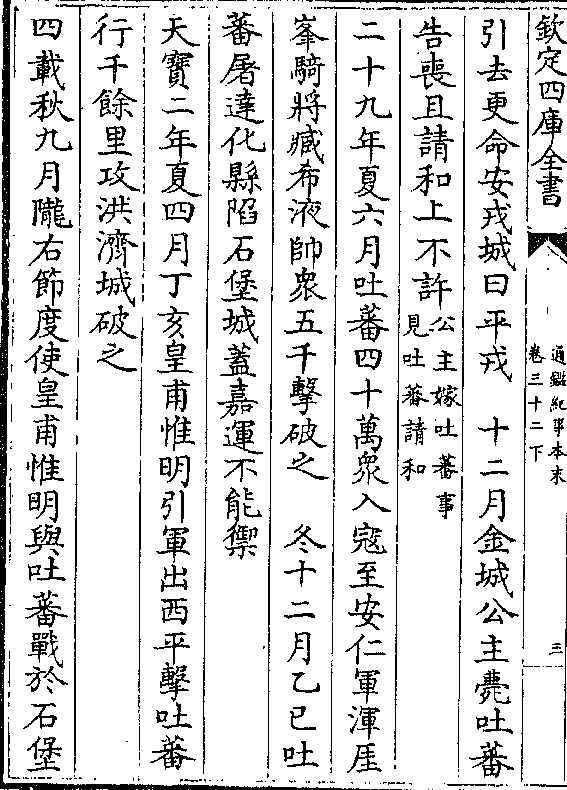 欽定四庫全書
通鑑紀事本末
卷三十二下
三
引去更命安戎城曰平戎　十二月金城公主薨吐蕃
告喪且請和上不許公主嫁吐蕃事
見吐蕃請和
二十九年夏六月吐蕃四十萬衆入寇至安仁軍渾厓
峯騎將臧布液帥衆五千擊破之　冬十二月乙巳吐
蕃屠達化縣陷石堡城蓋嘉運不能禦
天寶二年夏四月丁亥皇甫惟明引軍出西平擊吐蕃
行千餘里攻洪濟城破之
四載秋九月隴右節度使皇甫惟明與吐蕃戰於石堡